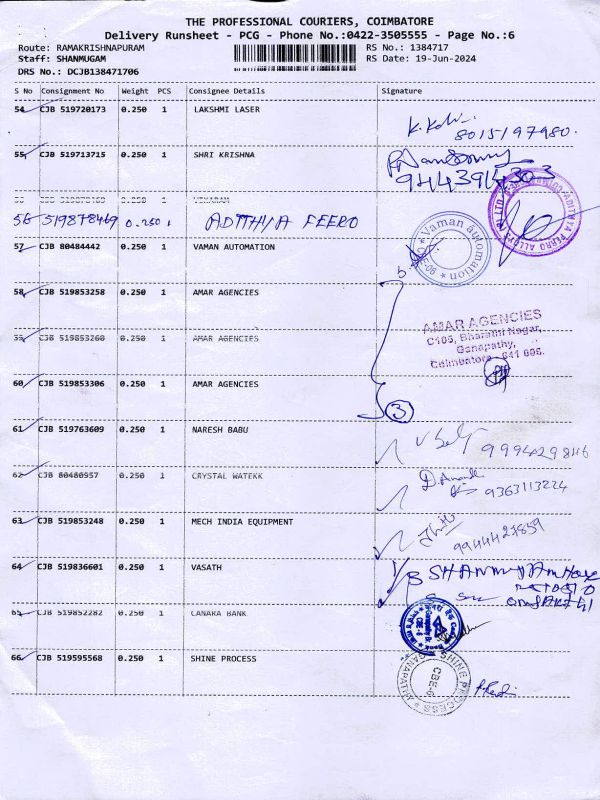 THE PROFESSIONAL COURIERS, COIMBATORE
Delivery Runsheet - PCG - Phone No.:0422-3505555 - Page No.:6
Route: RAMAKRISHNAPURAM RS No.: 1384717
Staff: SHANMUGAM RS Date: 19-Jun-2024
DRS No.: DCJB138471706
S No Consignment No Weight PCS Consignee Details Signature
54 CJB 519720173 0.250 1 LAKSHMI LASER
8015197980.
55 CJB 519713715 0.250 1 SHRI KRISHNA
9443914303
56 519878469 0.250 1 ADITHYA FEERO
57 CJB 80484442 0.250 1 VAMAN AUTOMATION
Vaman automation
58 CJB 519853258 0.250 1 AMAR AGENCIES
AMAR AGENCIES
C105, Bharathi Nagar,
Ganapathy,
Coimbatore - 641 006.
59 CJB 519853260 0.250 1 AMAR AGENCIES
60 CJB 519853306 0.250 1 AMAR AGENCIES
3
61 CJB 519763609 0.250 1 NARESH BABU
9994298116
62 CJB 80480957 0.250 1 CRYSTAL WATEKK
9363113224
63 CJB 519853248 0.250 1 MECH INDIA EQUIPMENT
9944427859
64 CJB 519836601 0.250 1 VASATH
65 CJB 519852282 0.250 1 CANARA BANK
66 CJB 519595568 0.250 1 SHINE PROCESS
SHINE PROCESS
GANAPATHY
CBE-6